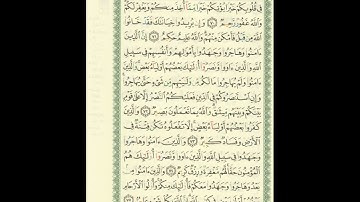 فِى قُلُوبِكُمْ خَيْرًا يُؤْتِكُمْ خَيْرًا مِّمَّآ أُخِذَ مِنكُمْ وَيَغْفِرْ لَكُمْ
وَٱللَّهُ غَفُورٌ رَّحِيمٌ ٧٠ وَإِن يُرِيدُوا۟ خِيَانَتَكَ فَقَدْ خَانُوا۟
ٱللَّهَ مِن قَبْلُ فَأَمْكَنَ مِنْهُمْ وَٱللَّهُ عَلِيمٌ حَكِيمٌ ٧١ إِنَّ ٱلَّذِينَ
ءَامَنُوا۟ وَهَاجَرُوا۟ وَجَٰهَدُوا۟ بِأَمْوَٰلِهِمْ وَأَنفُسِهِمْ فِى سَبِيلِ
ٱللَّهِ وَٱلَّذِينَ ءَاوَوا۟ وَّنَصَرُوٓا۟ أُو۟لَٰٓئِكَ بَعْضُهُمْ أَوْلِيَآءُ بَعْضٍ وَٱلَّذِينَ
ءَامَنُوا۟ وَلَمْ يُهَاجِرُوا۟ مَا لَكُم مِّن وَلَٰيَتِهِم مِّن شَىْءٍ حَتَّىٰ يُهَاجِرُوا۟
وَإِنِ ٱسْتَنصَرُوكُمْ فِى ٱلدِّينِ فَعَلَيْكُمُ ٱلنَّصْرُ إِلَّا عَلَىٰ قَوْمٍۭ
بَيْنَكُمْ وَبَيْنَهُم مِّيثَٰقٌ وَٱللَّهُ بِمَا تَعْمَلُونَ بَصِيرٌ ٧٢ وَٱلَّذِينَ
كَفَرُوا۟ بَعْضُهُمْ أَوْلِيَآءُ بَعْضٍ إِلَّا تَفْعَلُوهُ تَكُن فِتْنَةٌ فِى
ٱلْأَرْضِ وَفَسَادٌ كَبِيرٌ ٧٣ وَٱلَّذِينَ ءَامَنُوا۟ وَهَاجَرُوا۟
وَجَٰهَدُوا۟ فِى سَبِيلِ ٱللَّهِ وَٱلَّذِينَ ءَاوَوا۟ وَّنَصَرُوٓا۟ أُو۟لَٰٓئِكَ هُمُ
ٱلْمُؤْمِنُونَ حَقًّا لَّهُم مَّغْفِرَةٌ وَرِزْقٌ كَرِيمٌ ٧٤ وَٱلَّذِينَ ءَامَنُوا۟ مِنۢ
بَعْدُ وَهَاجَرُوا۟ وَجَٰهَدُوا۟ مَعَكُمْ فَأُو۟لَٰٓئِكَ مِنكُمْ وَأُو۟لُوا۟ ٱلْأَرْحَامِ